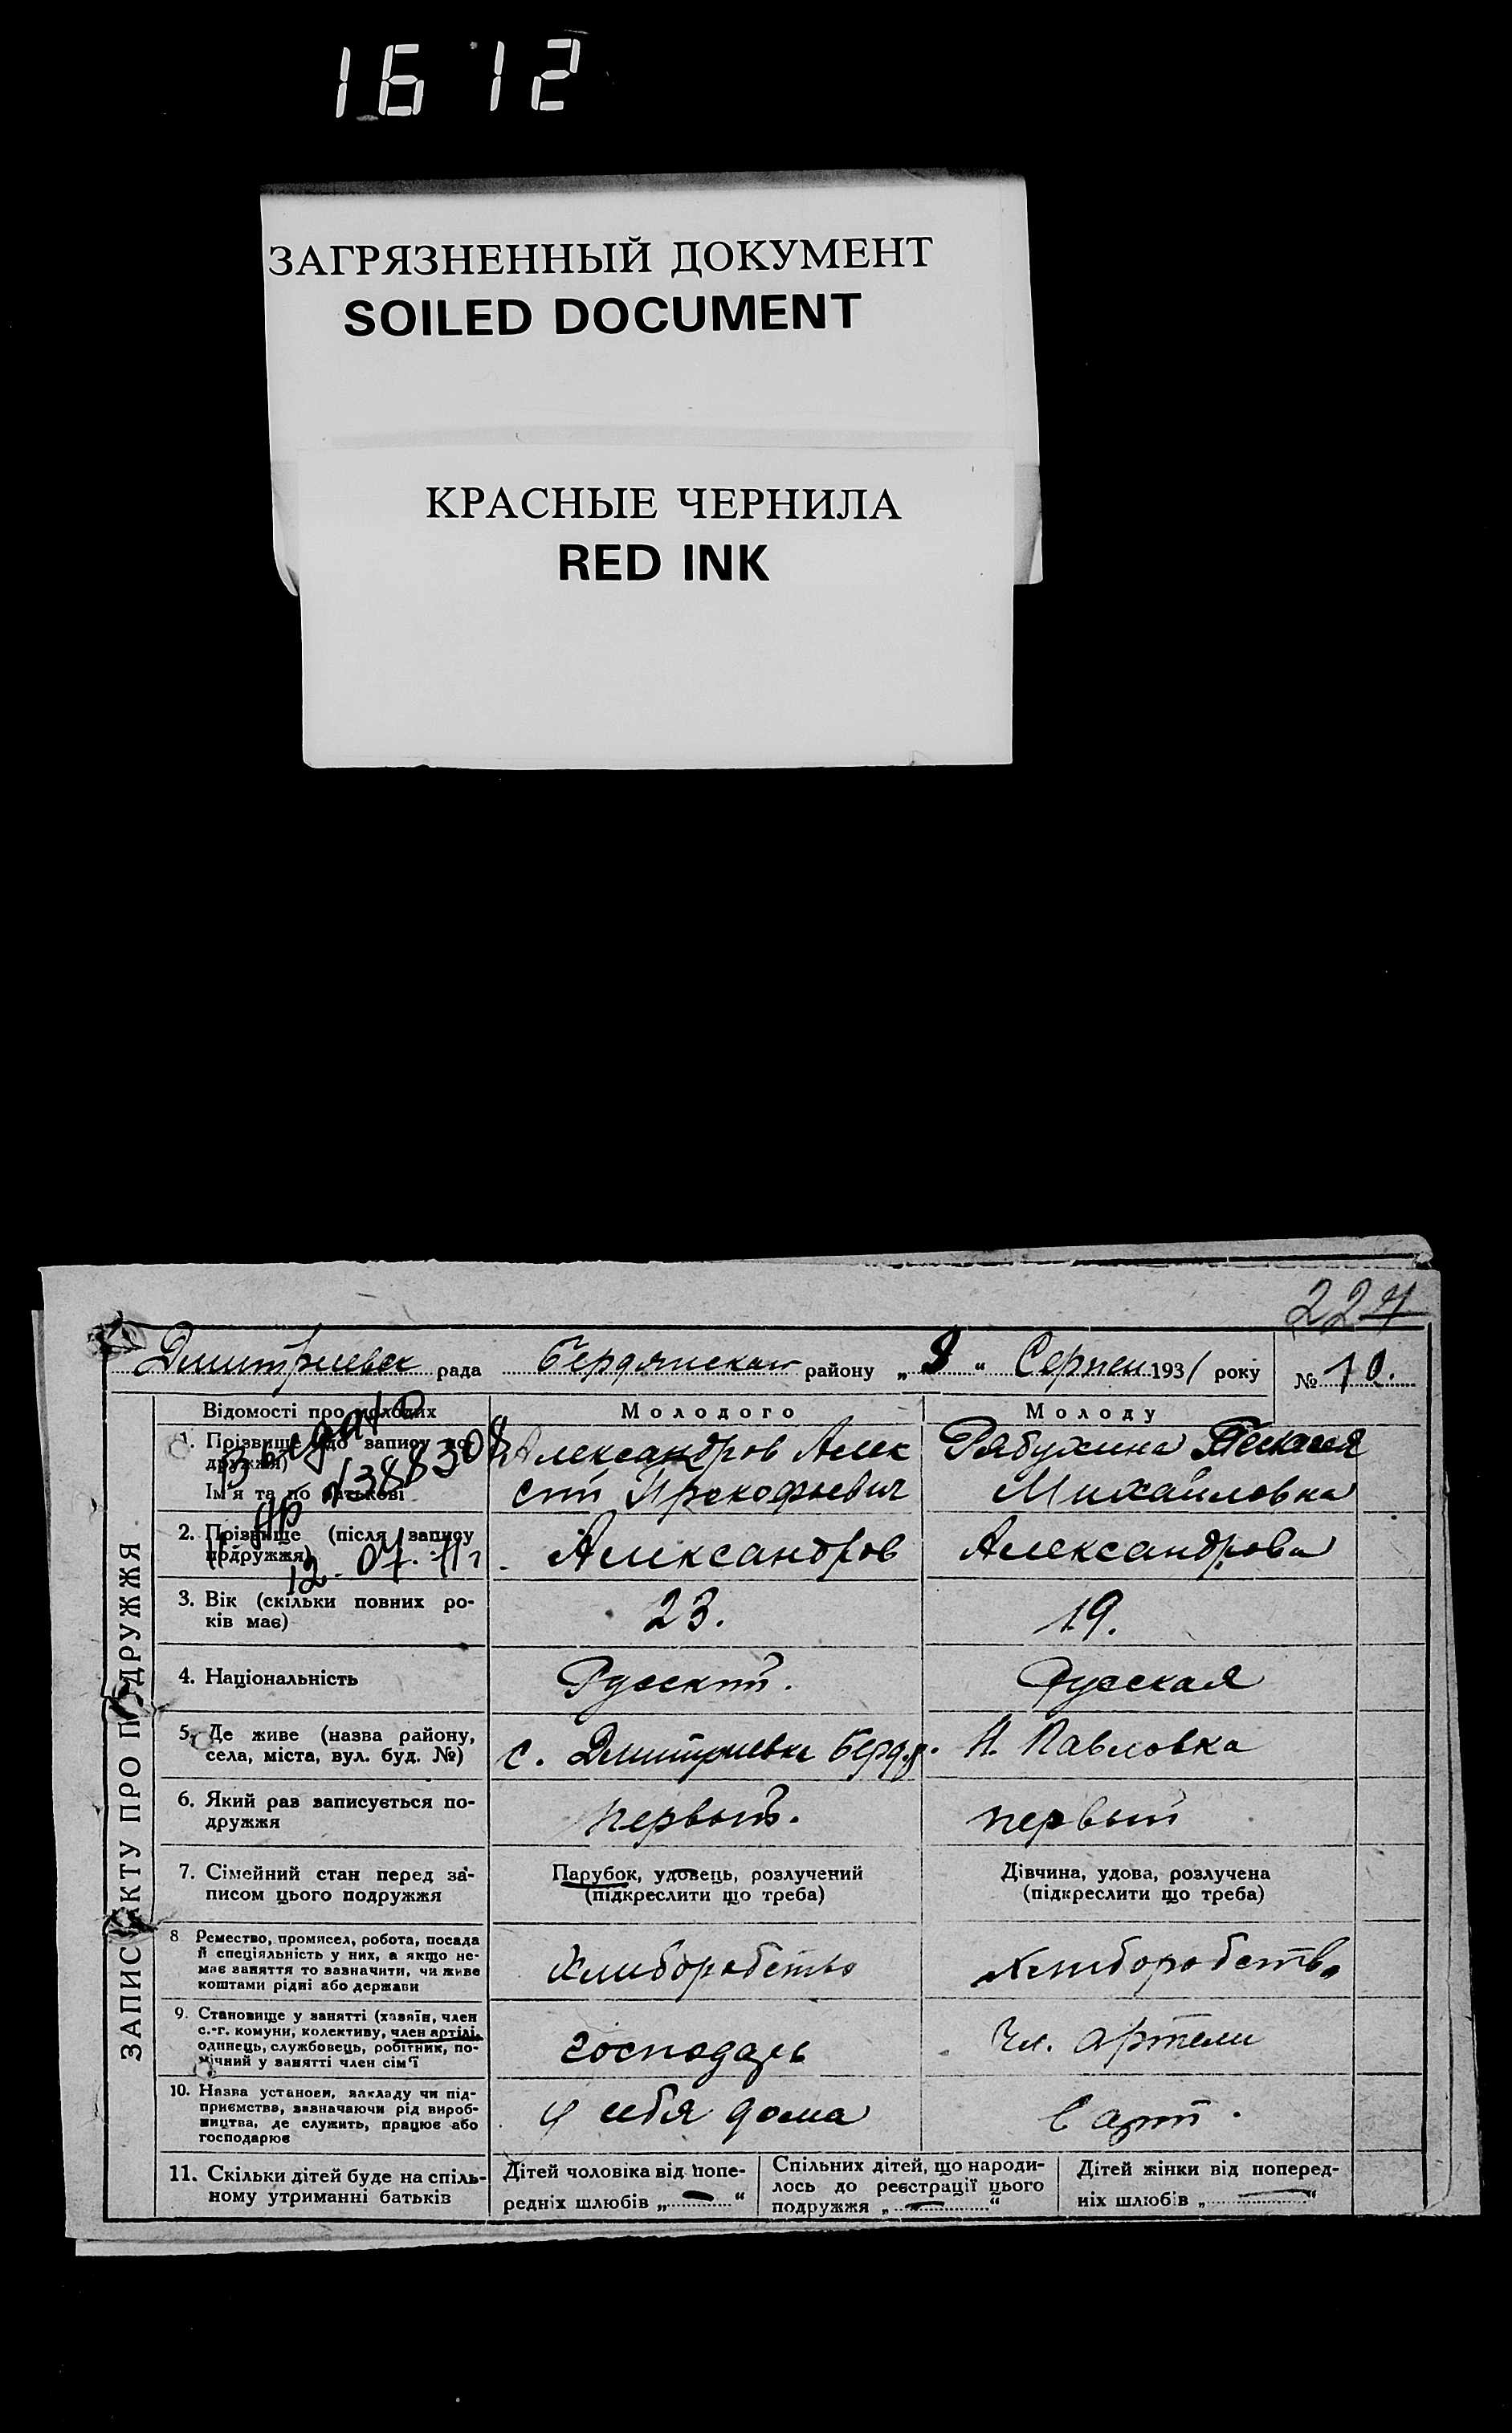 1612
ЗАГРЯЗНЕННЫЙ ДОКУМЕНТ
SOILED DOCUMENT
КРАСНЫЕ ЧЕРНИЛА
RED INK
227
Дмитриевск рада Бердянском району „ 9 “ Серпен 1931 року № 10.
ЗАПИС АКТУ ПРО ПОДРУЖЖЯ
Відомості про молодих
Молодого
Молоду
1. Прізвище (до запису подружжя)
Ім'я та по батькові
Александров Алек
сей Прокофьевич
Рябухина
Михайловна
12. 07.
2. Прізвище (після запису
подружжя)
Александров
Александрова
3. Вік (скільки повних ро-
ків має)
23.
19.
4. Національність
Русский.
Русская
5. Де живе (назва району,
села, міста, вул. буд. №)
с. Дмитриевка Берд.р.
Н. Павловка
6. Який раз записується по-
дружжя
первый.
первый
7. Сімейний стан перед за-
писом цього подружжя
Парубок, удовець, розлучений
(підкреслити що треба)
Дівчина, удова, розлучена
(підкреслити що треба)
8 Ремество, промисел, робота, посада
й спеціяльність у них, а якщо не-
має заняття то зазначити, чи живе
коштами рідні або держави
Хлиборобство
Хлиборобство
9. Становище у занятті (хазяїн, член
с.-г. комуни, колективу, член артілі,
одинець, службовець, робітник, по-
мічний у занятті член сім'ї
господарь
Чл. артели
10. Назва установи, закладу чи під-
приємства, зазначаючи рід вироб-
ництва, де служить, працює або
господарює
У себя дома
в арт.
11. Скільки дітей буде на спіль-
ному утриманні батьків
Дітей чоловіка від попе-
редніх шлюбів „ — “
Спільних дітей, що народи-
лось до реєстрації цього
подружжя „ — “
Дітей жінки від поперед-
ніх шлюбів „ — “